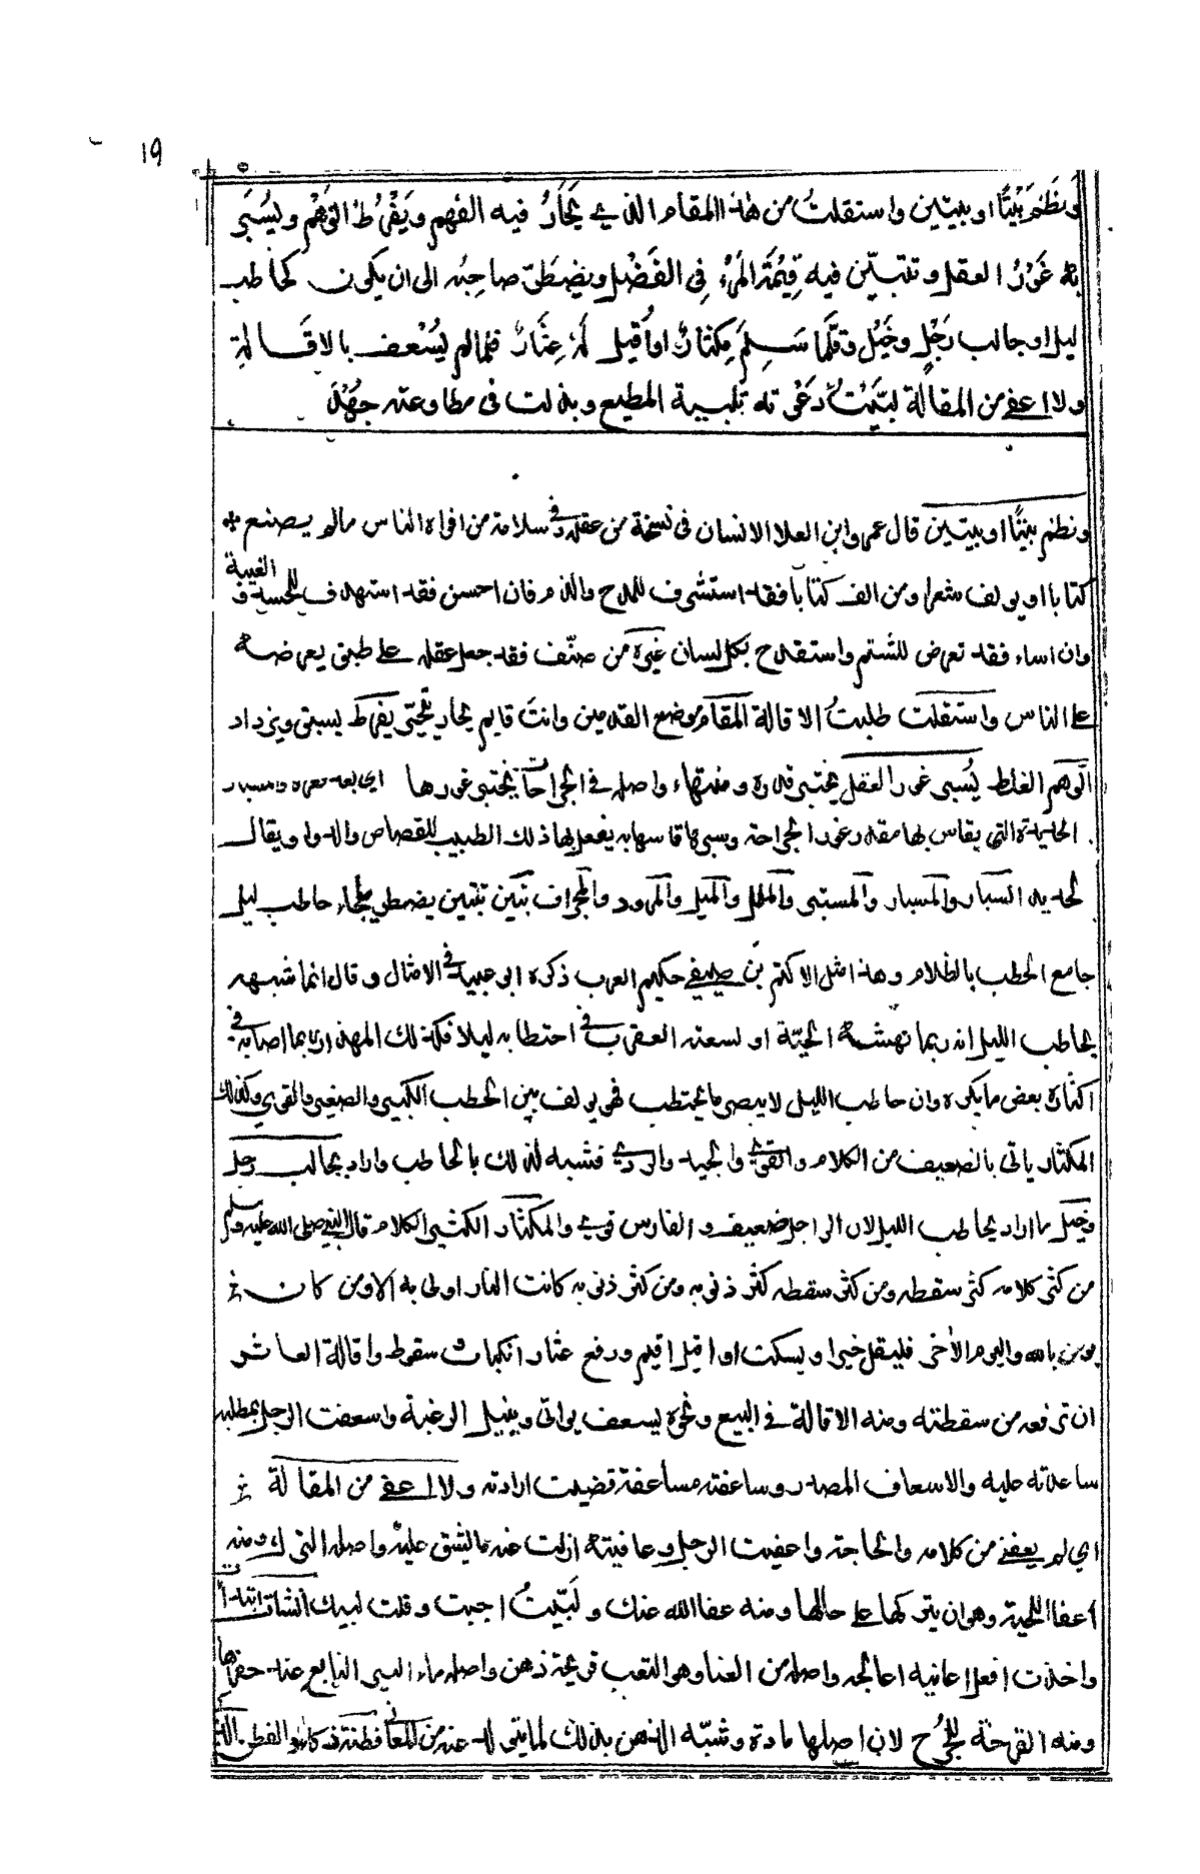 ١٩
ونَظَمَ بَيْتًا او بيتين واستقلتُ من هذا المقام الذي يَحَارُ فيه الفهم ويَفْرُطُ الوَهْم ويُسْبَر
به غَوْرُ العقل وتتبيّن فيه قِيْمَة المَرْءُ فِى الفَضْلِ ويضطَرّ صاحِبُه الى ان يكون كحاطب
ليل او جالب رَجْلٍ وخَيْل وقلَّما سَلِمَ مِكثارٌ او أُقيل لَهُ عِثَارٌ فلما لم يُسْعف بالاقَالةِ
ولا اعفى من المقالة لبّيْتُ دَعْوته تلبية المطيع وبذلت فى مطاوعته جهْدَ
ونظم بيتًا او بيتين قال عمرو ابن العلا الانسان فى فسحة من عقله وفى سلامة من افواه الناس مالم يصنع
كتابا او يولف شعرا ومن الف كتابا فقد استشرف للمدح والذم فان احسن فقد استهدف للحسد و الغيبة
وان اساء فقد تعرض للشتم واستقدح بكل لسان غيره من صنّف فقد جعل عقله على طبق يعرضه
على الناس واستقلت طلبتُ الاقالة المقام موضع القدمين وانت قايم يحار يتحير يفرط يسبق ويزداد
الوهم الغلط يُسبر غور العقل يختبر قدره ومنتهاه واصله فى الجراحات يختبر غورها اي بعد قعره والمسبار
الحديدة التي يقاس بها مقدار غور الجراحة وسبرها قاسها به يفعل بها ذلك الطبيب للقصاص والدوا ويقال
لحديده السبار والمسبار والمسبر والململ والميل والمرود والمجراف تبيّن تتبين يضطر يلجاء حاطب ليل
جامع الحطب بالظلام وهذا مثل لاكثم بن صيفي حكيم العرب ذكره ابو عبيد فى الامثال وقال انما شبهه
بحاطب الليل انه ربما نهشته الحيّة او لسعته العقرب فى احتطابه ليلا فكذلك المهذار ربما اصابه فى
اكثاره بعض ما يكره وان حاطب الليل لا يبصر ما يحتطب فهو يولف بين الحطب الكبير والصغير والقوي وكذلك
المكثار ياتى بالضعيف من الكلام والقوي والجيد والردي فشبه لذلك بالحاطب واراد بجالب رجل
وخيل ما اراد بحاطب الليل لان الراجل ضعيف والفارس قوي والمكثار الكثير الكلام قال النبي صلى الله عليه وسلم
من كثر كلامه كثر سقطه ومن كثر سقطه كثر ذنوبه ومن كثر ذنوبه كانت النار اولى به الا ومن كان
يومن بالله واليوم الاخر فليقل خيرا او يسكت او اقيل اقيم ورفع عثار انكباب سقوط واقالة العاثر
ان ترفعه من سقطته ومنه الاقالة فى البيع ونحوه يسعف يواتى وينيل الرغبة واسعفت الرجل بمطلبه
ساعدته عليه والاسعاف المصدر وساعفته مساعفة قضيت ارادته ولا اعفى من المقالة
اي لم يعفنى من كلامه والحاجة واعفيت الرجل وعافيته ازلت عنه ما يشق عليه واصله الترك ومنه
اعفا اللحية وهو ان يتركها على حالها ومنه عفا الله عنك ولبّيتُ اجبت وقلت لبيك انشات ابتدأ
واخذت افعل اعانيه اعالجه واصله من العنا وهو التعب قريحة ذهن واصله ماء البير النابع عند حفرها
ومنه القرحة للجُرح لان اصلها مادة وشبّه الذهن بذلك لما يتولد عنه من المعانى فطنة ذكاء والفطن